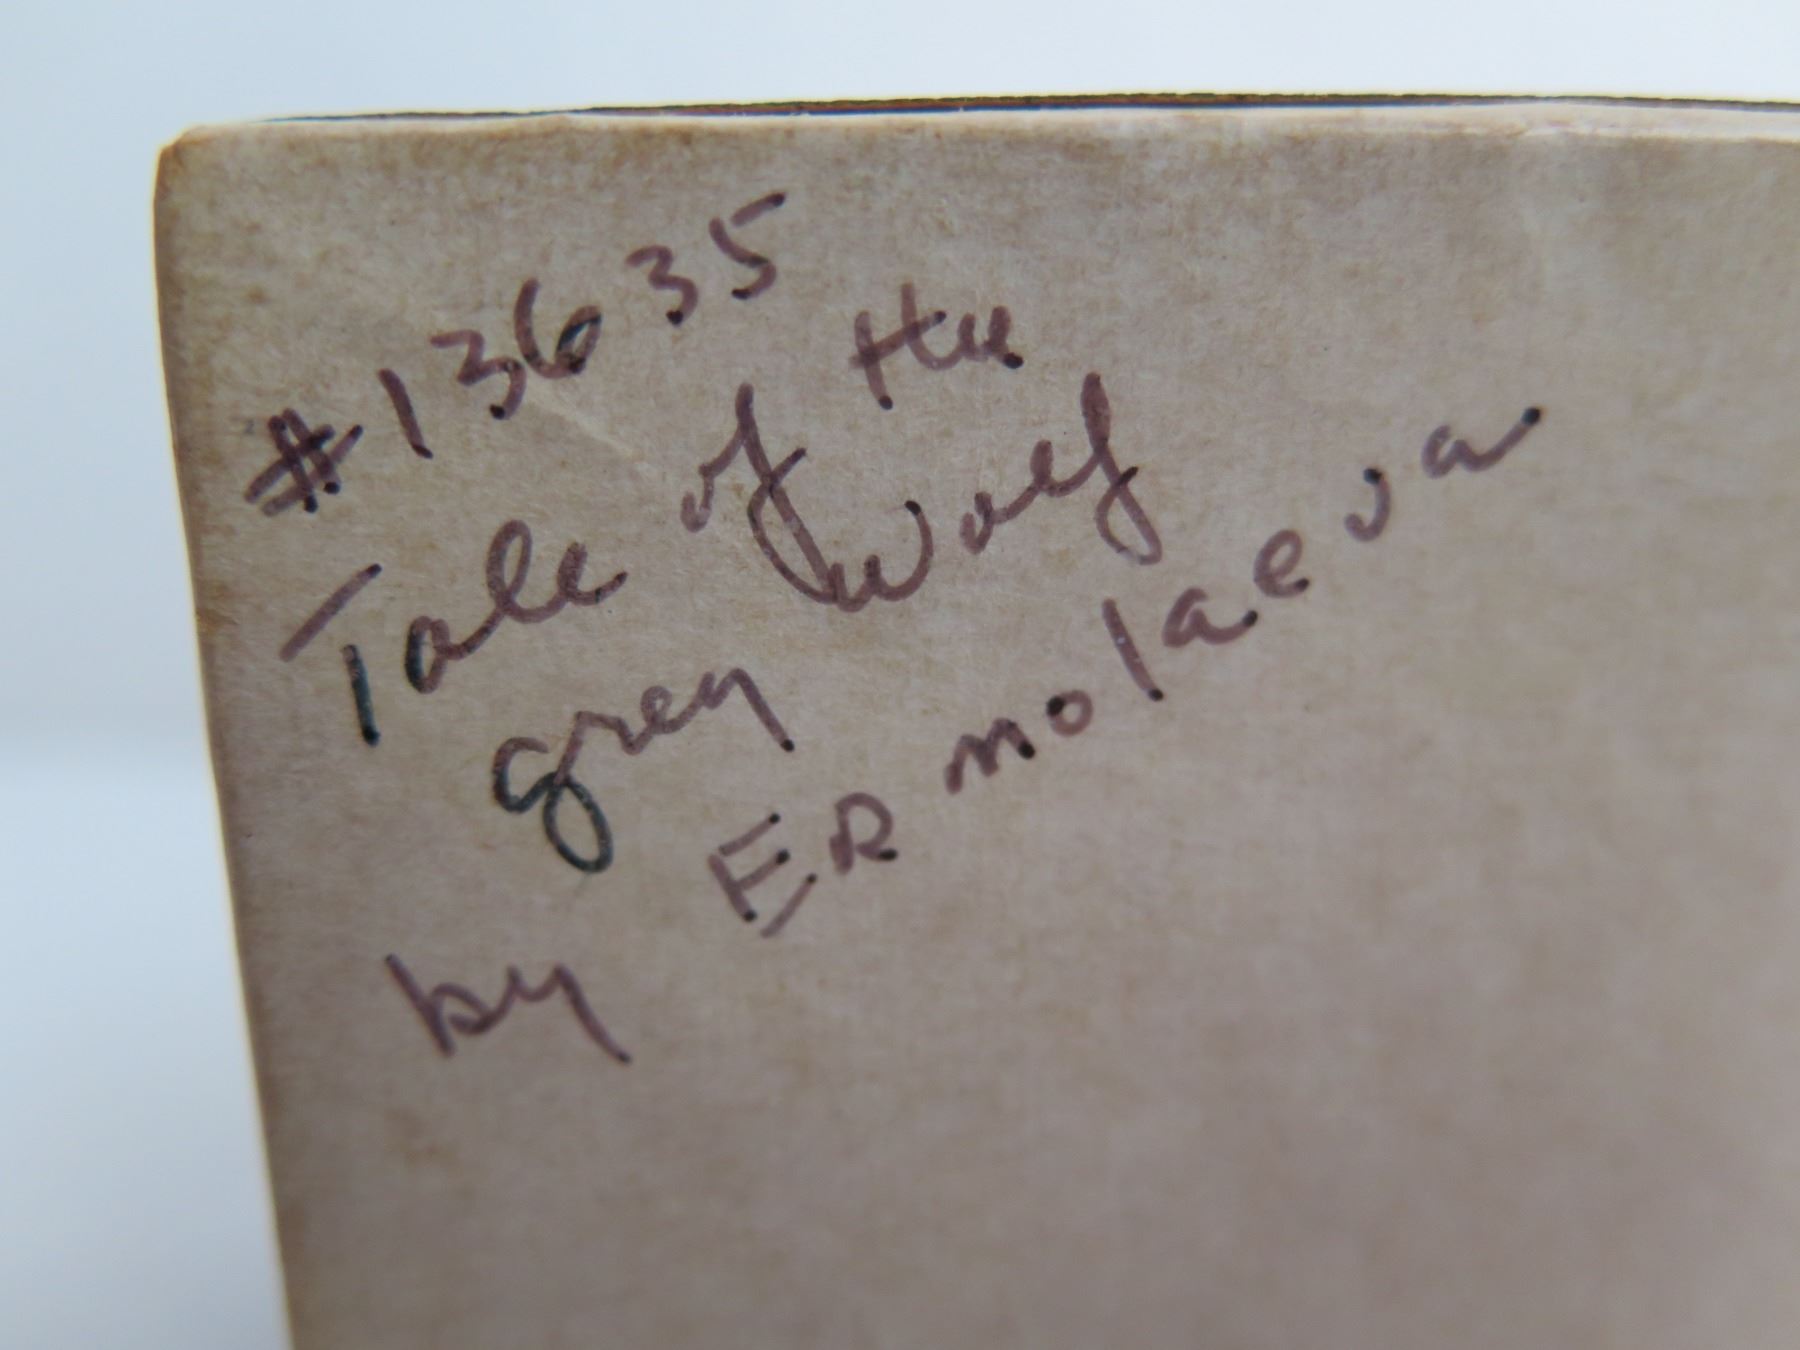 #13635
Tale of the
grey Wolf
by ERmolaeva